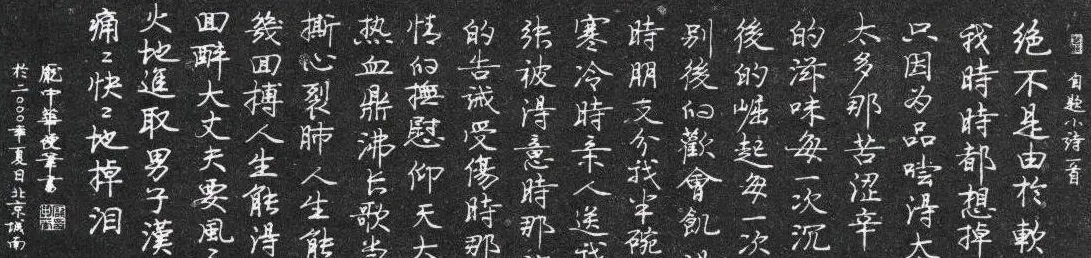 自題小詩一首
絕不是由於軟
我時時都想掉
只因为品嚐得太
太多那苦涩辛
的滋味每一次沉
後的崛起每一次
别後的歡會飢
時朋友分我半碗
寒冷時亲人送我
張被得意時那
的告诫受傷時那
情的撫慰仰天大
热血鼎沸长歌当
撕心裂肺人生能
幾回搏人生能得
回醉大丈夫要風
火地進取男子漢
痛〻快〻地掉泪
龐中華硬筆書
於二000年夏日北京城南